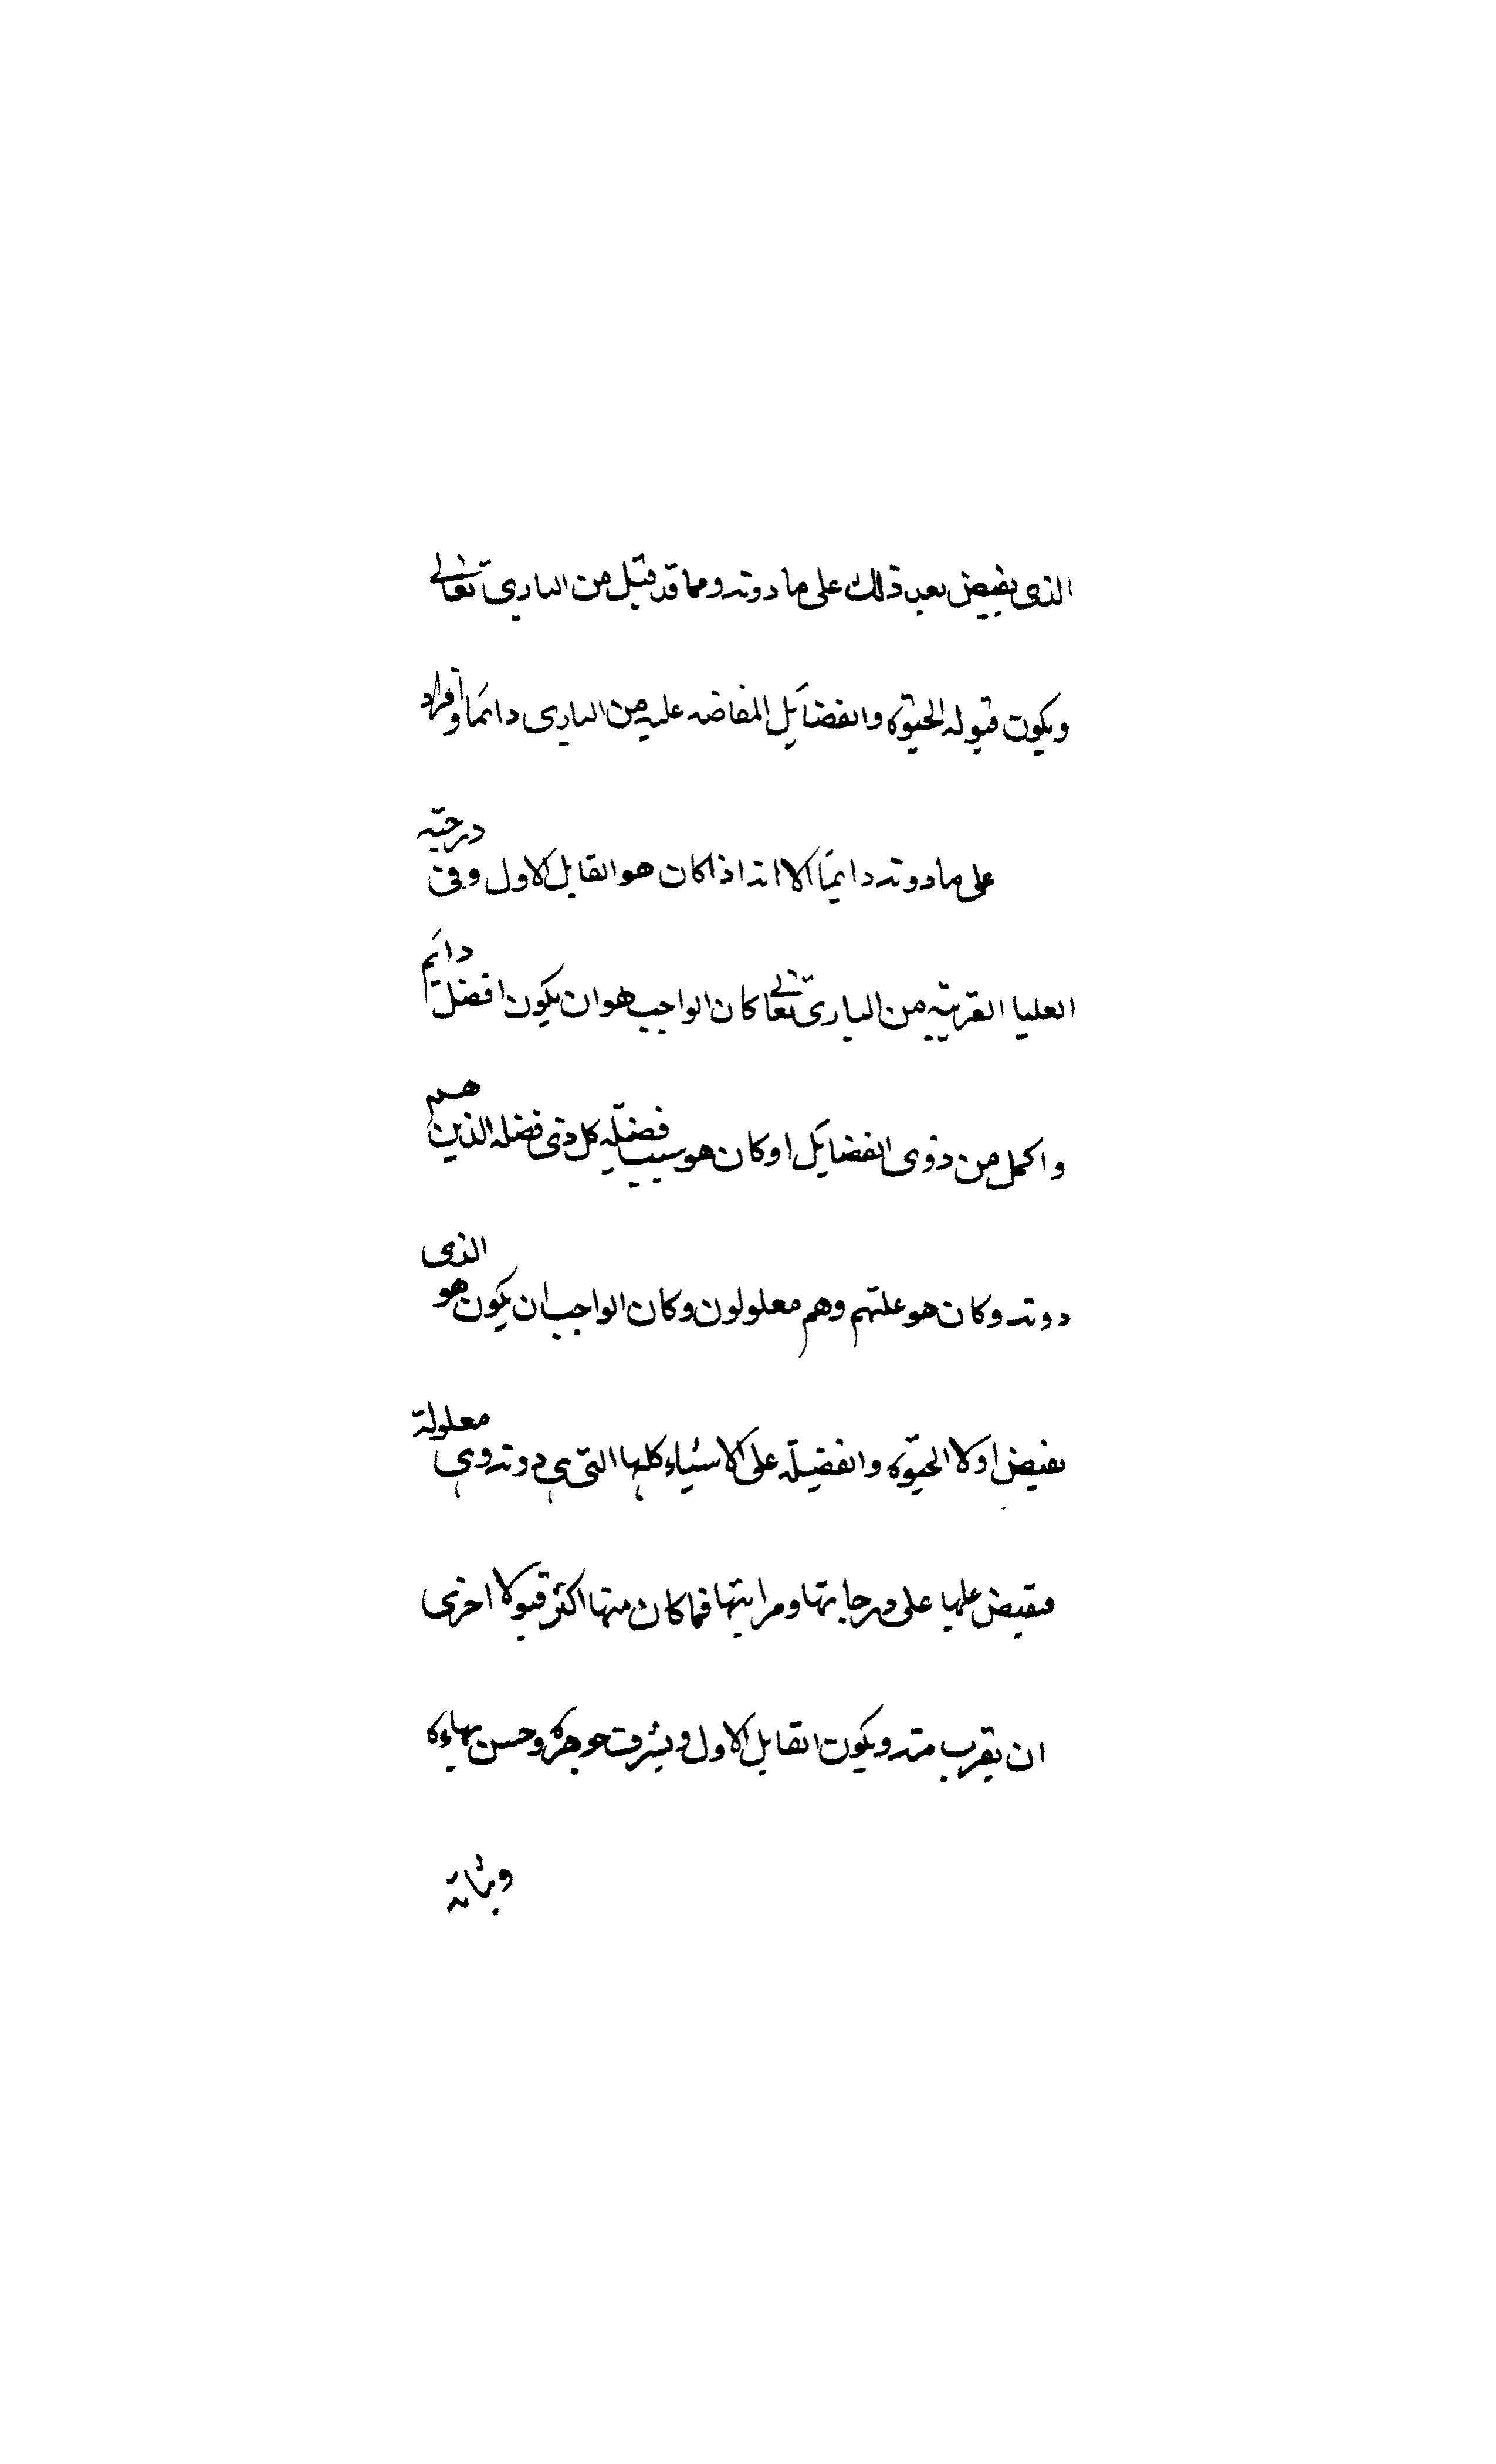 الذى يفيض بعد ذلك على ما دونه ومما قد قبل من البارى تعالى
ويكون قبوله الحيوة والفضايل المفاضه عليه من البارى دائما وافراد
على ما دونه دايما الا انه اذا كان هو القابل الاول وفى درجته
العليا القريبه من البارى تعالى كان الواجب هو ان يكون افضل دائم
واكمل من ذوى الفضايل او كان هو سبب فضيلة كل ذى فضله الذين هم
دونه وكان هو علتهم وهم معلولون وكان الواجب ان يكون هو الذى
يفيض اولا الحيوة والفضيلة على الاشياء كلها التى هى دونه وهى معلولة
فيفيض عليها على درجاتها ومراتبها فما كان منها اكثر قبولا احرى
ان يقرب منه ويكون القابل الاول ويشرف جوهره وحسن بهايه
وثباته